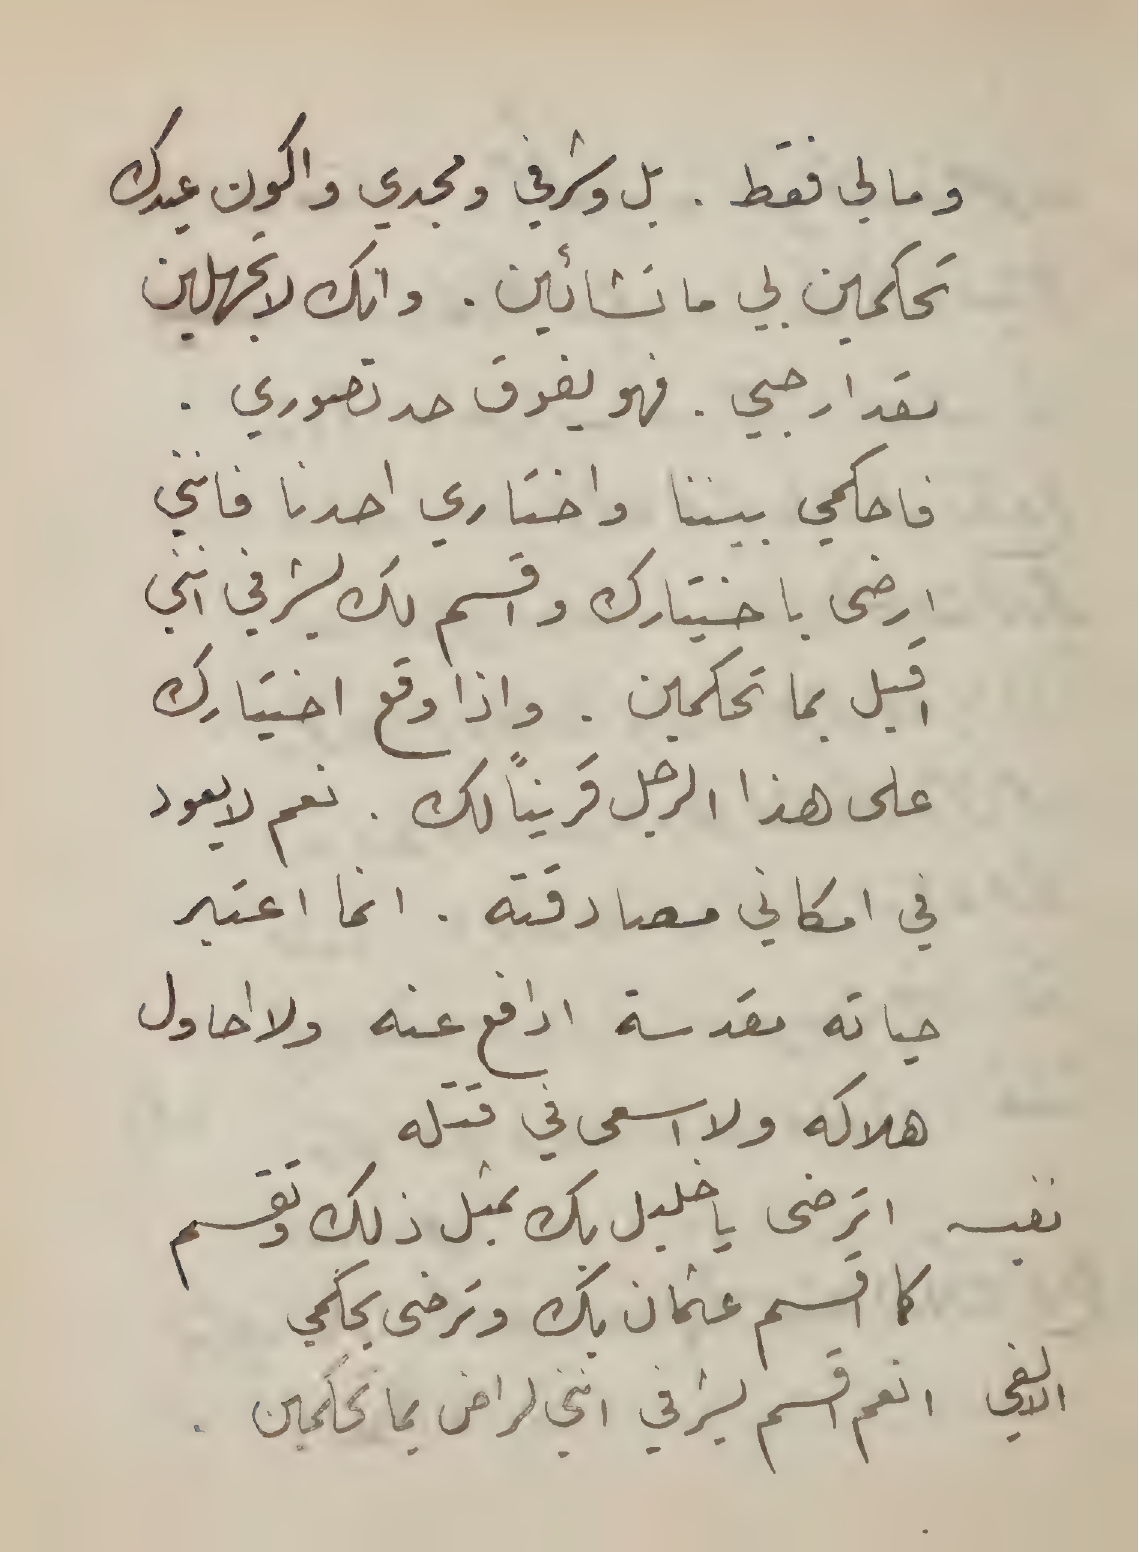 ومالي فقط . بل وشرفي ومجدي واكون عبدك
تحكمين لي ما تشائين . وانك لا تجهلين
مقدار حبي . فهو يفوق حد تصوري .
فاحكمي بيننا واختاري احدنا فانني
ارضى باختيارك واقسم لك بشرفي انني
اقبل بما تحكمين . واذا وقع اختيارك
على هذا الرجل قريناً لك . نعم لا يعود
في امكاني مصادقته . انما اعتبر
حياته مقدسة ادافع عنه ولا احاول
هلاكه ولا اسعى في قتله
نفيسه اترضى يا خليل بك بمثل ذلك وتقسم
كما اقسم عثمان بك وترضى بحكمي
الالفي نعم اقسم بشرفي انني لراض بما تحكمين .